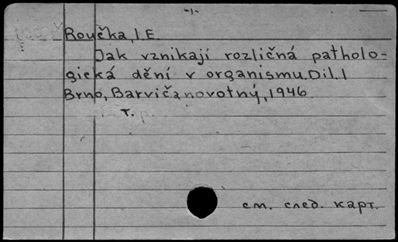 -1-
Roučka, I.E.
Jak vznikají rozličná patholo-
gická dění v organismu. Díl. I
Brno, Barvič a novotný, 1946.
т.
см. след. карт.